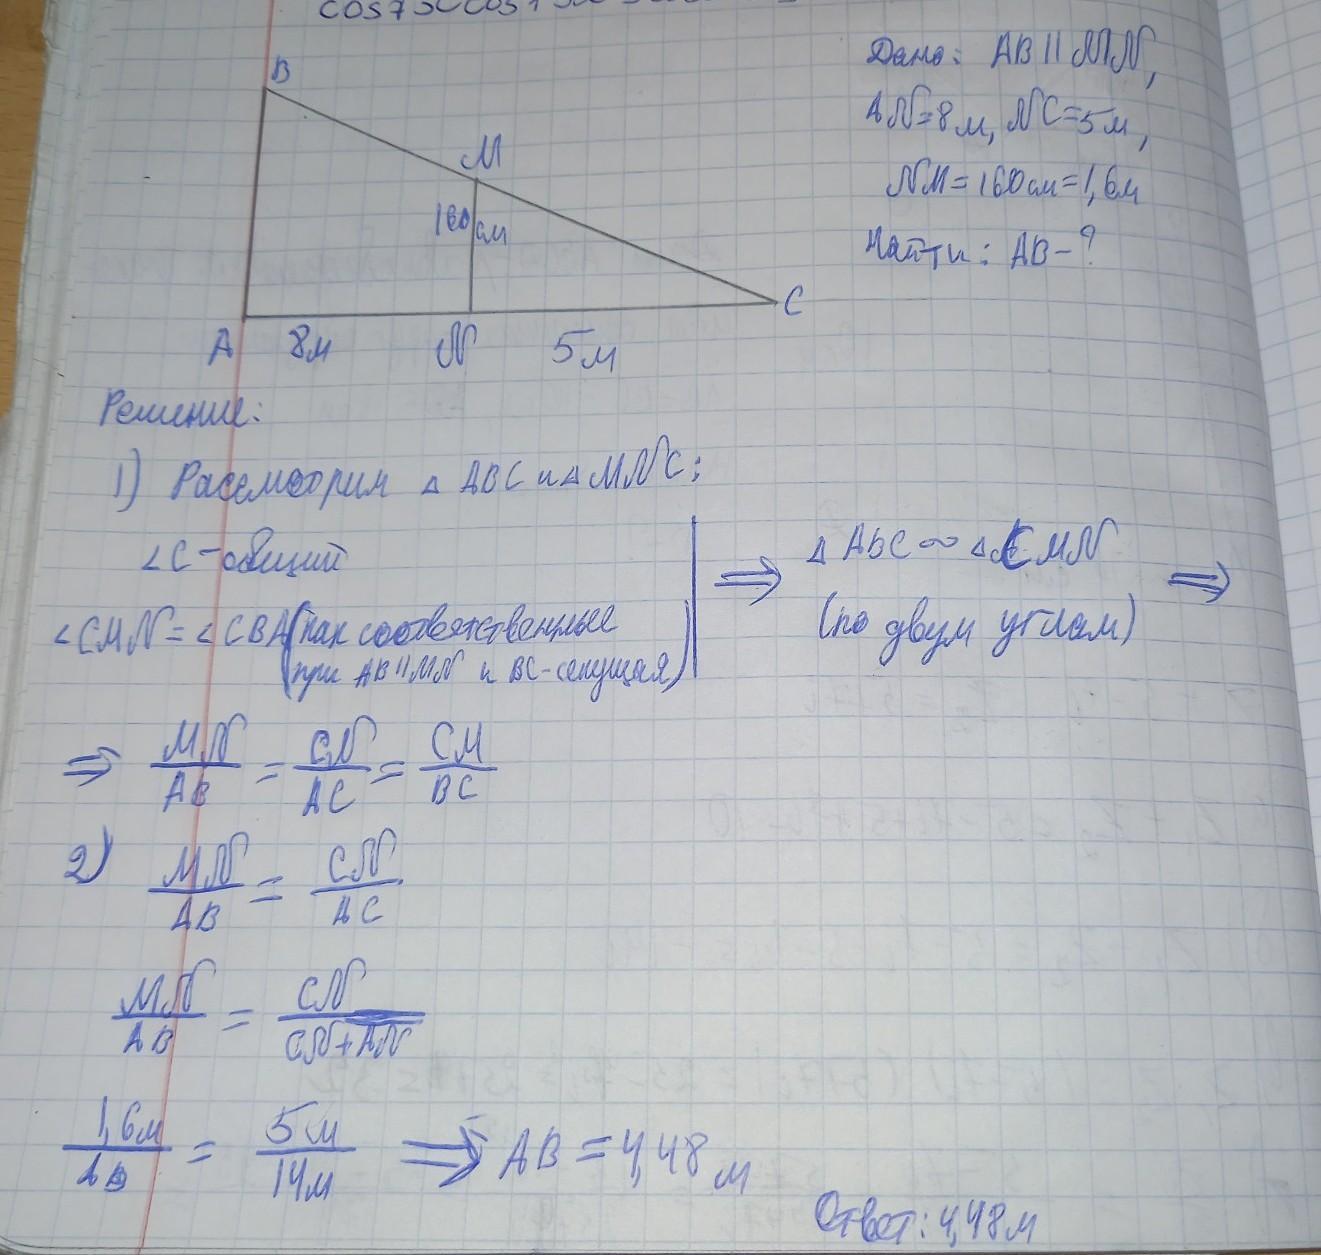 B
M
160 см
A 8м N 5м C
Дано: AB || MN,
AN=8м, NC=5м,
NM=160см=1,6м
Найти: AB-?
Решение:
1) Рассмотрим △ ABC и △ MNC:
∠C-общий
∠CMN=∠CBA (как соответственные
при AB||MN и BC-секущая)
⇒ △ ABC ∾ △ CMN ⇒
(по двум углам)
⇒ MN/AB = CN/AC = CM/BC
2) MN/AB = CN/AC
MN/AB = CN/CN+AN
1,6м/AB = 5м/14м ⇒ AB = 4,48м
Ответ: 4,48м